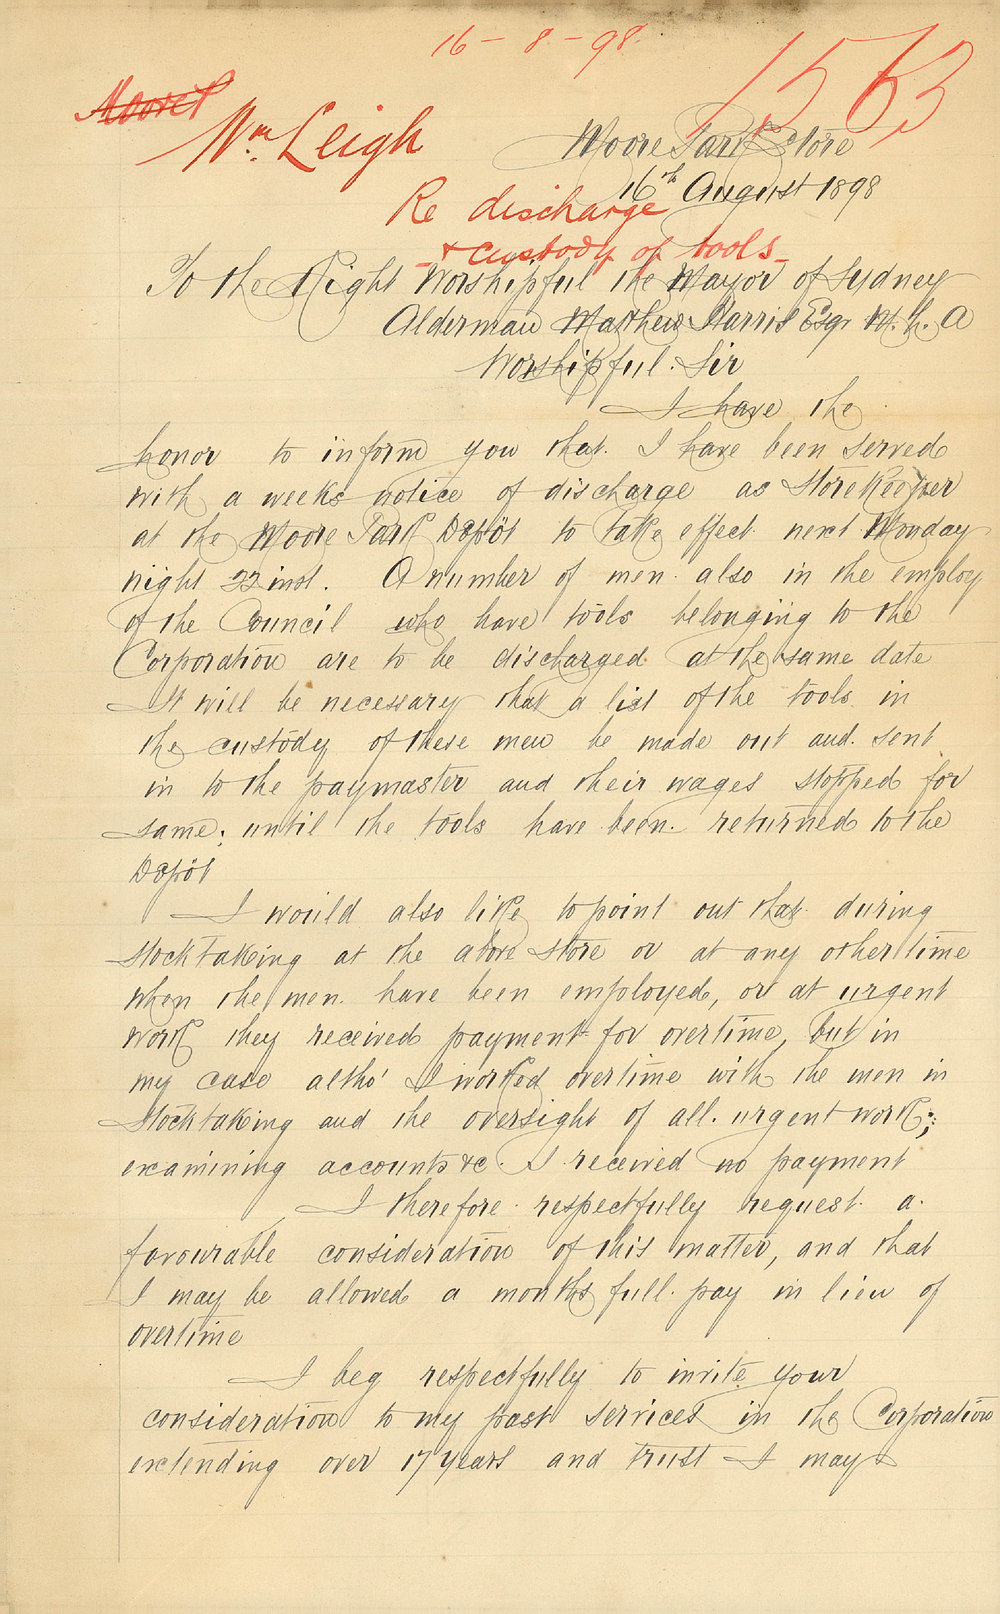 16 - 8 - 98.
1563
Wm. Leigh
Moore Park Store
16th August 1898
Re discharge
& custody of tools
To the Right Worshipful the Mayor of Sydney
Alderman Mathew Harris Esqr M. L. A
Worshipful Sir
I have the
honor to inform you that I have been served
with a weeks notice of discharge as Storekeeper
at the Moore Park Depôt to take effect next Monday
night 22 inst. A number of men also in the employ
of the Council who have tools belonging to the
Corporation are to be discharged at the same date
It will be necessary that a list of the tools in
the custody of these men be made out and sent
in to the paymaster and their wages stopped for
same; until the tools have been returned to the
Depôt
I would also like to point out that during
stocktaking at the above store or at any other time
when the men have been employed, or at urgent
work they received payment for overtime, but in
my case altho' I worked overtime with the men in
Stocktaking and the oversight of all urgent work;
examining accounts &c. I received no payment
I therefore respectfully request a
favourable consideration of this matter, and that
I may be allowed a months full pay in lieu of
overtime
I beg respectfully to invite your
consideration to my past services in the Corporation
extending over 17 years and trust I may